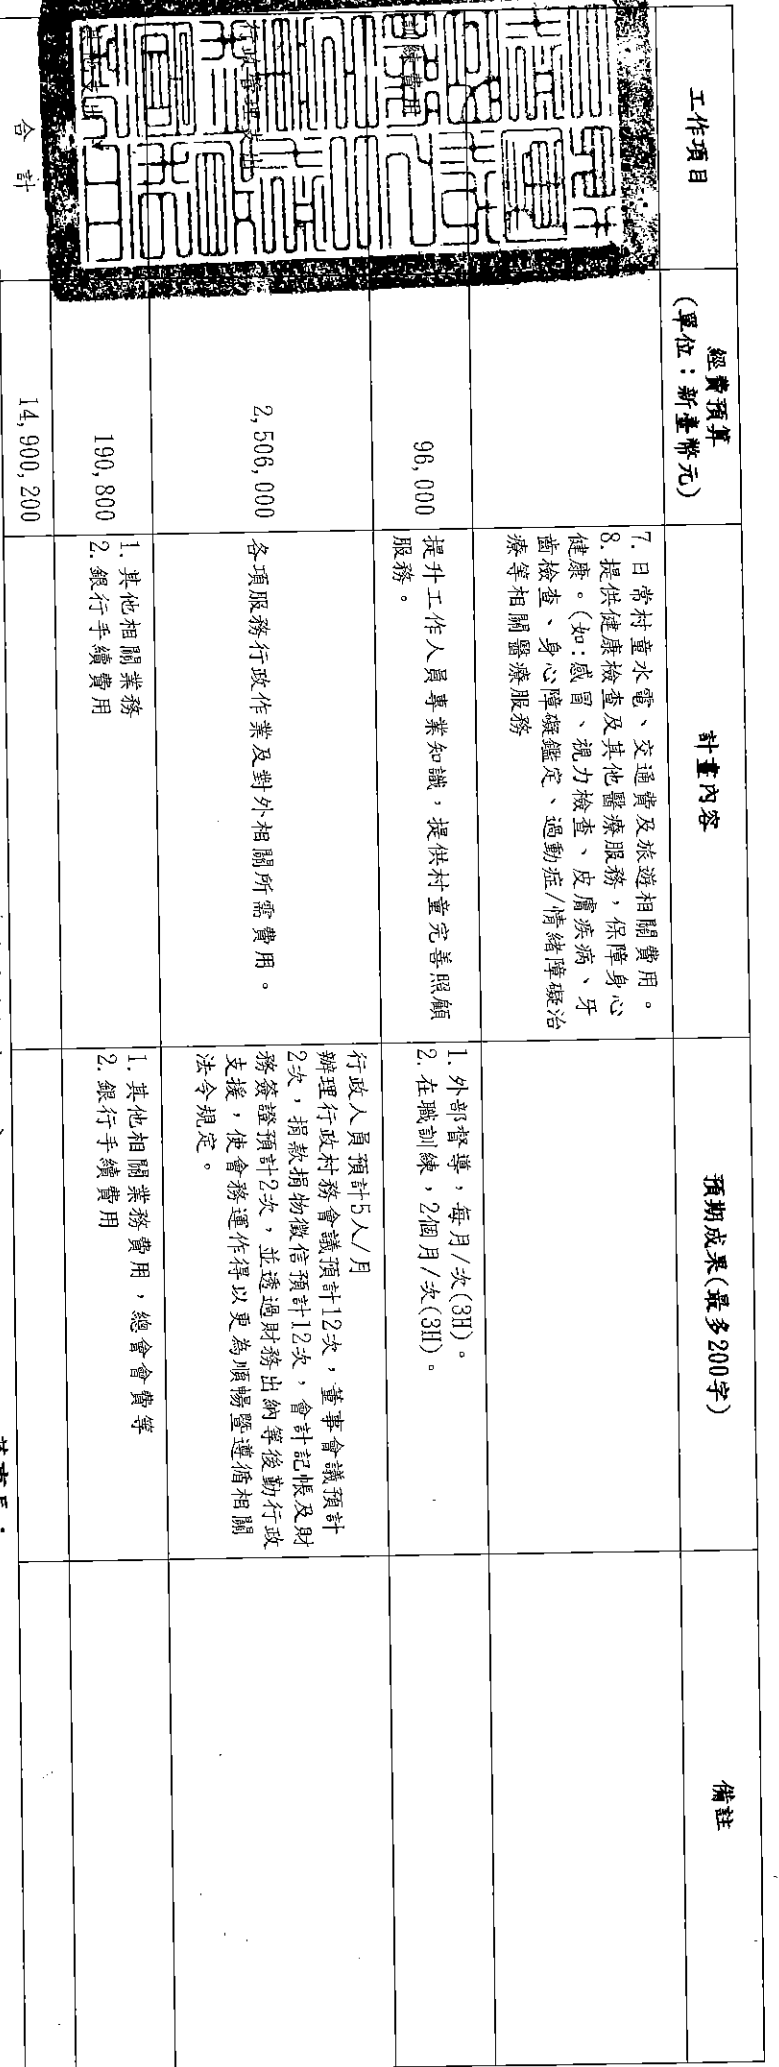 工作項目
經費預算
(單位：新臺幣元)
計畫內容
預期成果(最多200字)
備註
7. 日常村童水電、交通費及旅遊相關費用。
8. 提供健康檢查及其他醫療服務，保障身心
健康。(如:感冒、視力檢查、皮膚疾病、牙
齒檢查、身心障礙鑑定、過動症/情緒障礙治
療等相關醫療服務
訓練費用
96,000
提升工作人員專業知識，提供村童完善照顧
服務。
1. 外部督導，每月/次(3H)。
2. 在職訓練，2個月/次(3H)。
行政管理支出
2,506,000
各項服務行政作業及對外相關所需費用。
行政人員預計5人/月
辦理行政村務會議預計12次，董事會議預計
2次，捐款捐物徵信預計12次，會計記帳及財
務簽證預計2次，並透過財務出納等後勤行政
支援，使會務運作得以更為順暢暨遵循相關
法令規定。
190,800
1. 其他相關業務
2. 銀行手續費用
1. 其他相關業務費用，總會會費等
2. 銀行手續費用
合計
14,900,200